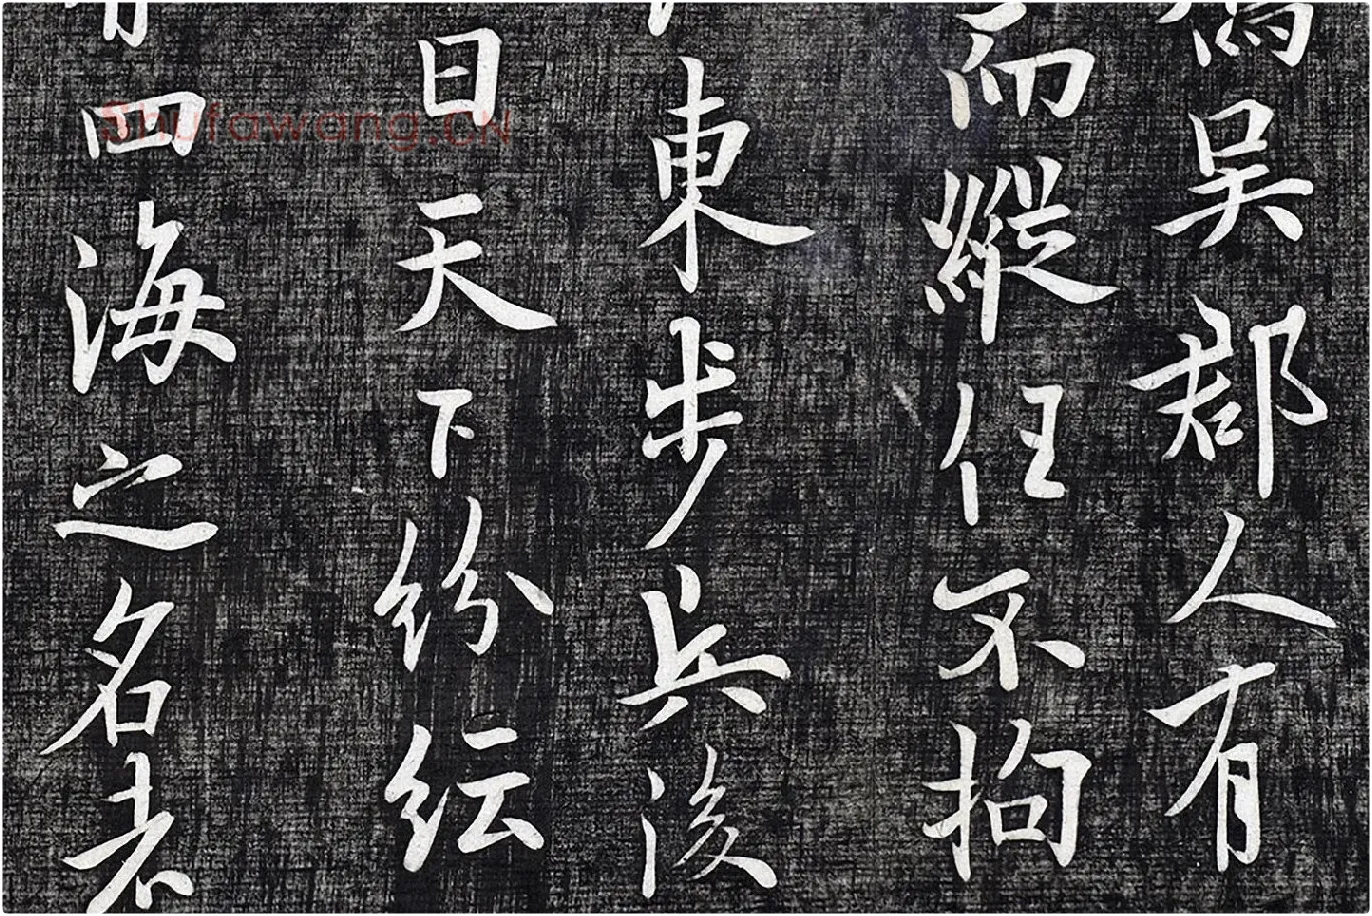 吳郡人有
而縱任不拘
東步兵後
曰天下紛紜
四海之名者
Shufawang.CN